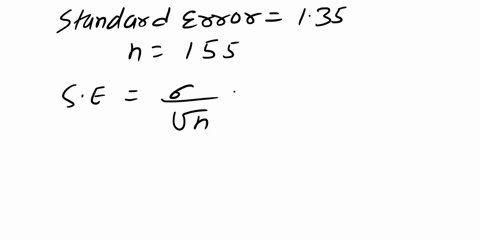 Standard Error = 1.35
n = 155
S.E = σ / √n